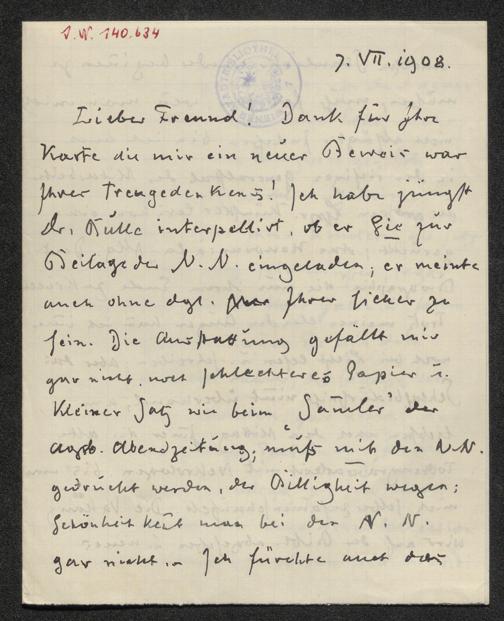 J.N. 140.634
7. VII. 1908.
Lieber Freund! Dank für Ihre
Karte die mir ein neuer Beweis war
Ihrer Treugedenkens! Ich habe jüngst
Dr. Bulle interpellirt, ob er Sie zur
Beilage der N. N. eingeladen, er meinte
auch ohne dgl. Ihrer sicher zu
sein. Die Ausstattung gefällt mir
gar nicht, noch schlechteres Papier u.
kleiner Satz wie beim "Samler" der
Augsb. Abendzeitung; muß mit den N.N.
gedruckt werden, der Billigkeit wegen;
Schönheit kent man bei den N. N.
gar nicht. Ich fürchte auch das